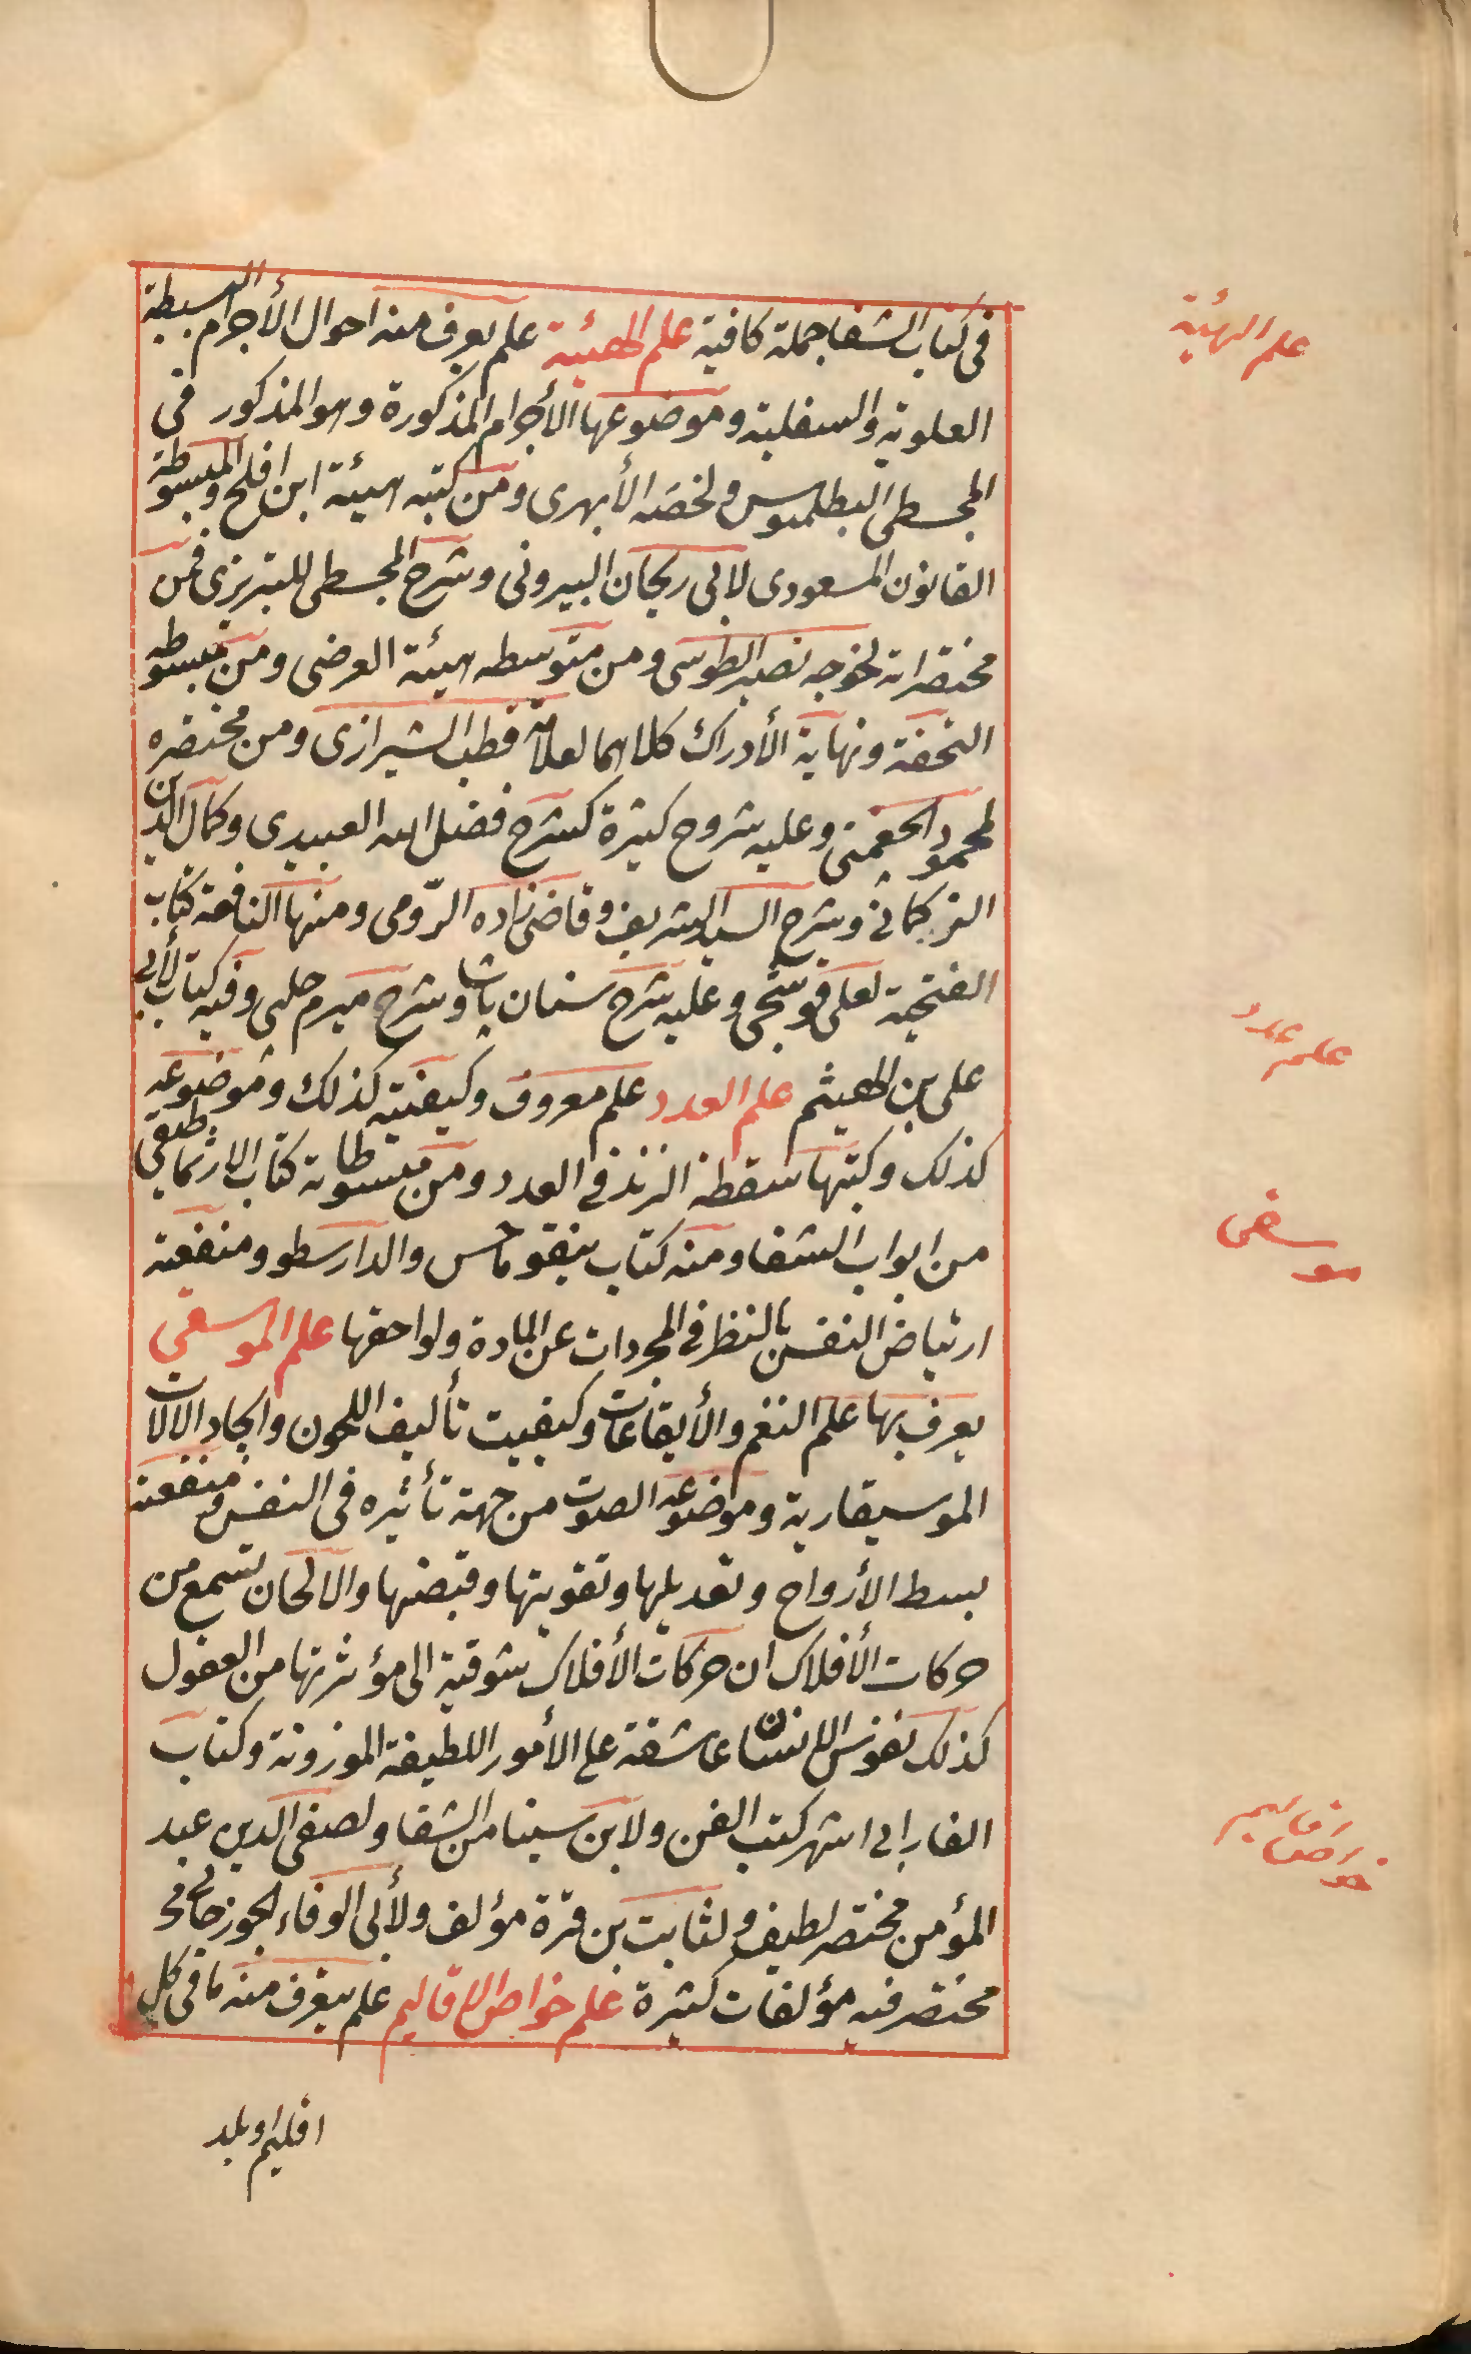 فى كتاب الشفا جملة كافية علم الهيئية علم يعرف منه احوال الأجرام البسيطة
العلوية والسفلية وموضوعها الأجرام المذكورة وهو المذكور فى
المجسطى البطلميوس ولخصه الأبهرى ومن كتبه هيئة ابن افلح والمبسوطة
القانون المسعودى لابى ريحان البيرونى وشرح المجسطى للتبريزى فمن
مختصراته لخوجه نصير الطوسى ومن متوسطه هيئة العرضى ومن مبسوطه
التحفة ونهاية الأدراك كلاهما لعلامة قطب الشيرازى ومن مختصره
لمحمود الجغمينى وعليه شروح كثيرة كشرح فضل الله العبيدى وكمال الدين
التركمانى وشرح السيد الشريف وقاضى زاده الرّومى ومنها النافعة كتاب
الفتحية لعلى قوشجى وعليه شرح سنان پاشا وشرح ميرم چلبى وفيه كتاب لأبى
على بن الهيثم علم العدد علم معروف وكيفيته كذلك وموضوعه
كذلك وكتبها سقطة الزند فى العدد ومن مبسوطاته كتاب الارثماطيقى
من ابواب الشفا ومنه كتاب نيقوماخس والدارسطو ومنفعته
ارتياض النفس بالنظر فى المجردات عن المادة ولواحقها علم الموسقى
يعرف بها علم النغم والأيقاعات وكيفيت تأليف اللحون وايجاد الالات
الموسيقارية وموضوعه الصوت من جهة تأثيره فى النفس ومنفعته
بسط الأرواح وتعديلها وتقويتها وقبضها والالحان تسمع من
حركات الأفلاك ان حركات الأفلاك شوقية الى مؤثرتها من العقول
كذلك نفوس الانسان عاشقة على الأمور اللطيفة الموزونة وكتاب
الفارابى اشهر كتب الفن ولابن سينا من الشفا ولصفى الدين عبد
المؤمن مختصر لطيف ولثابت بن قرة مؤلف ولأبى الوفاء الجوزجانى
مختصر فيه مؤلفات كثيرة علم خواص الاقاليم علم يعرف منه ما فى كل
اقليم او بلد
علم الهيئة
علم عدد
موسقى
خواص اقاليم